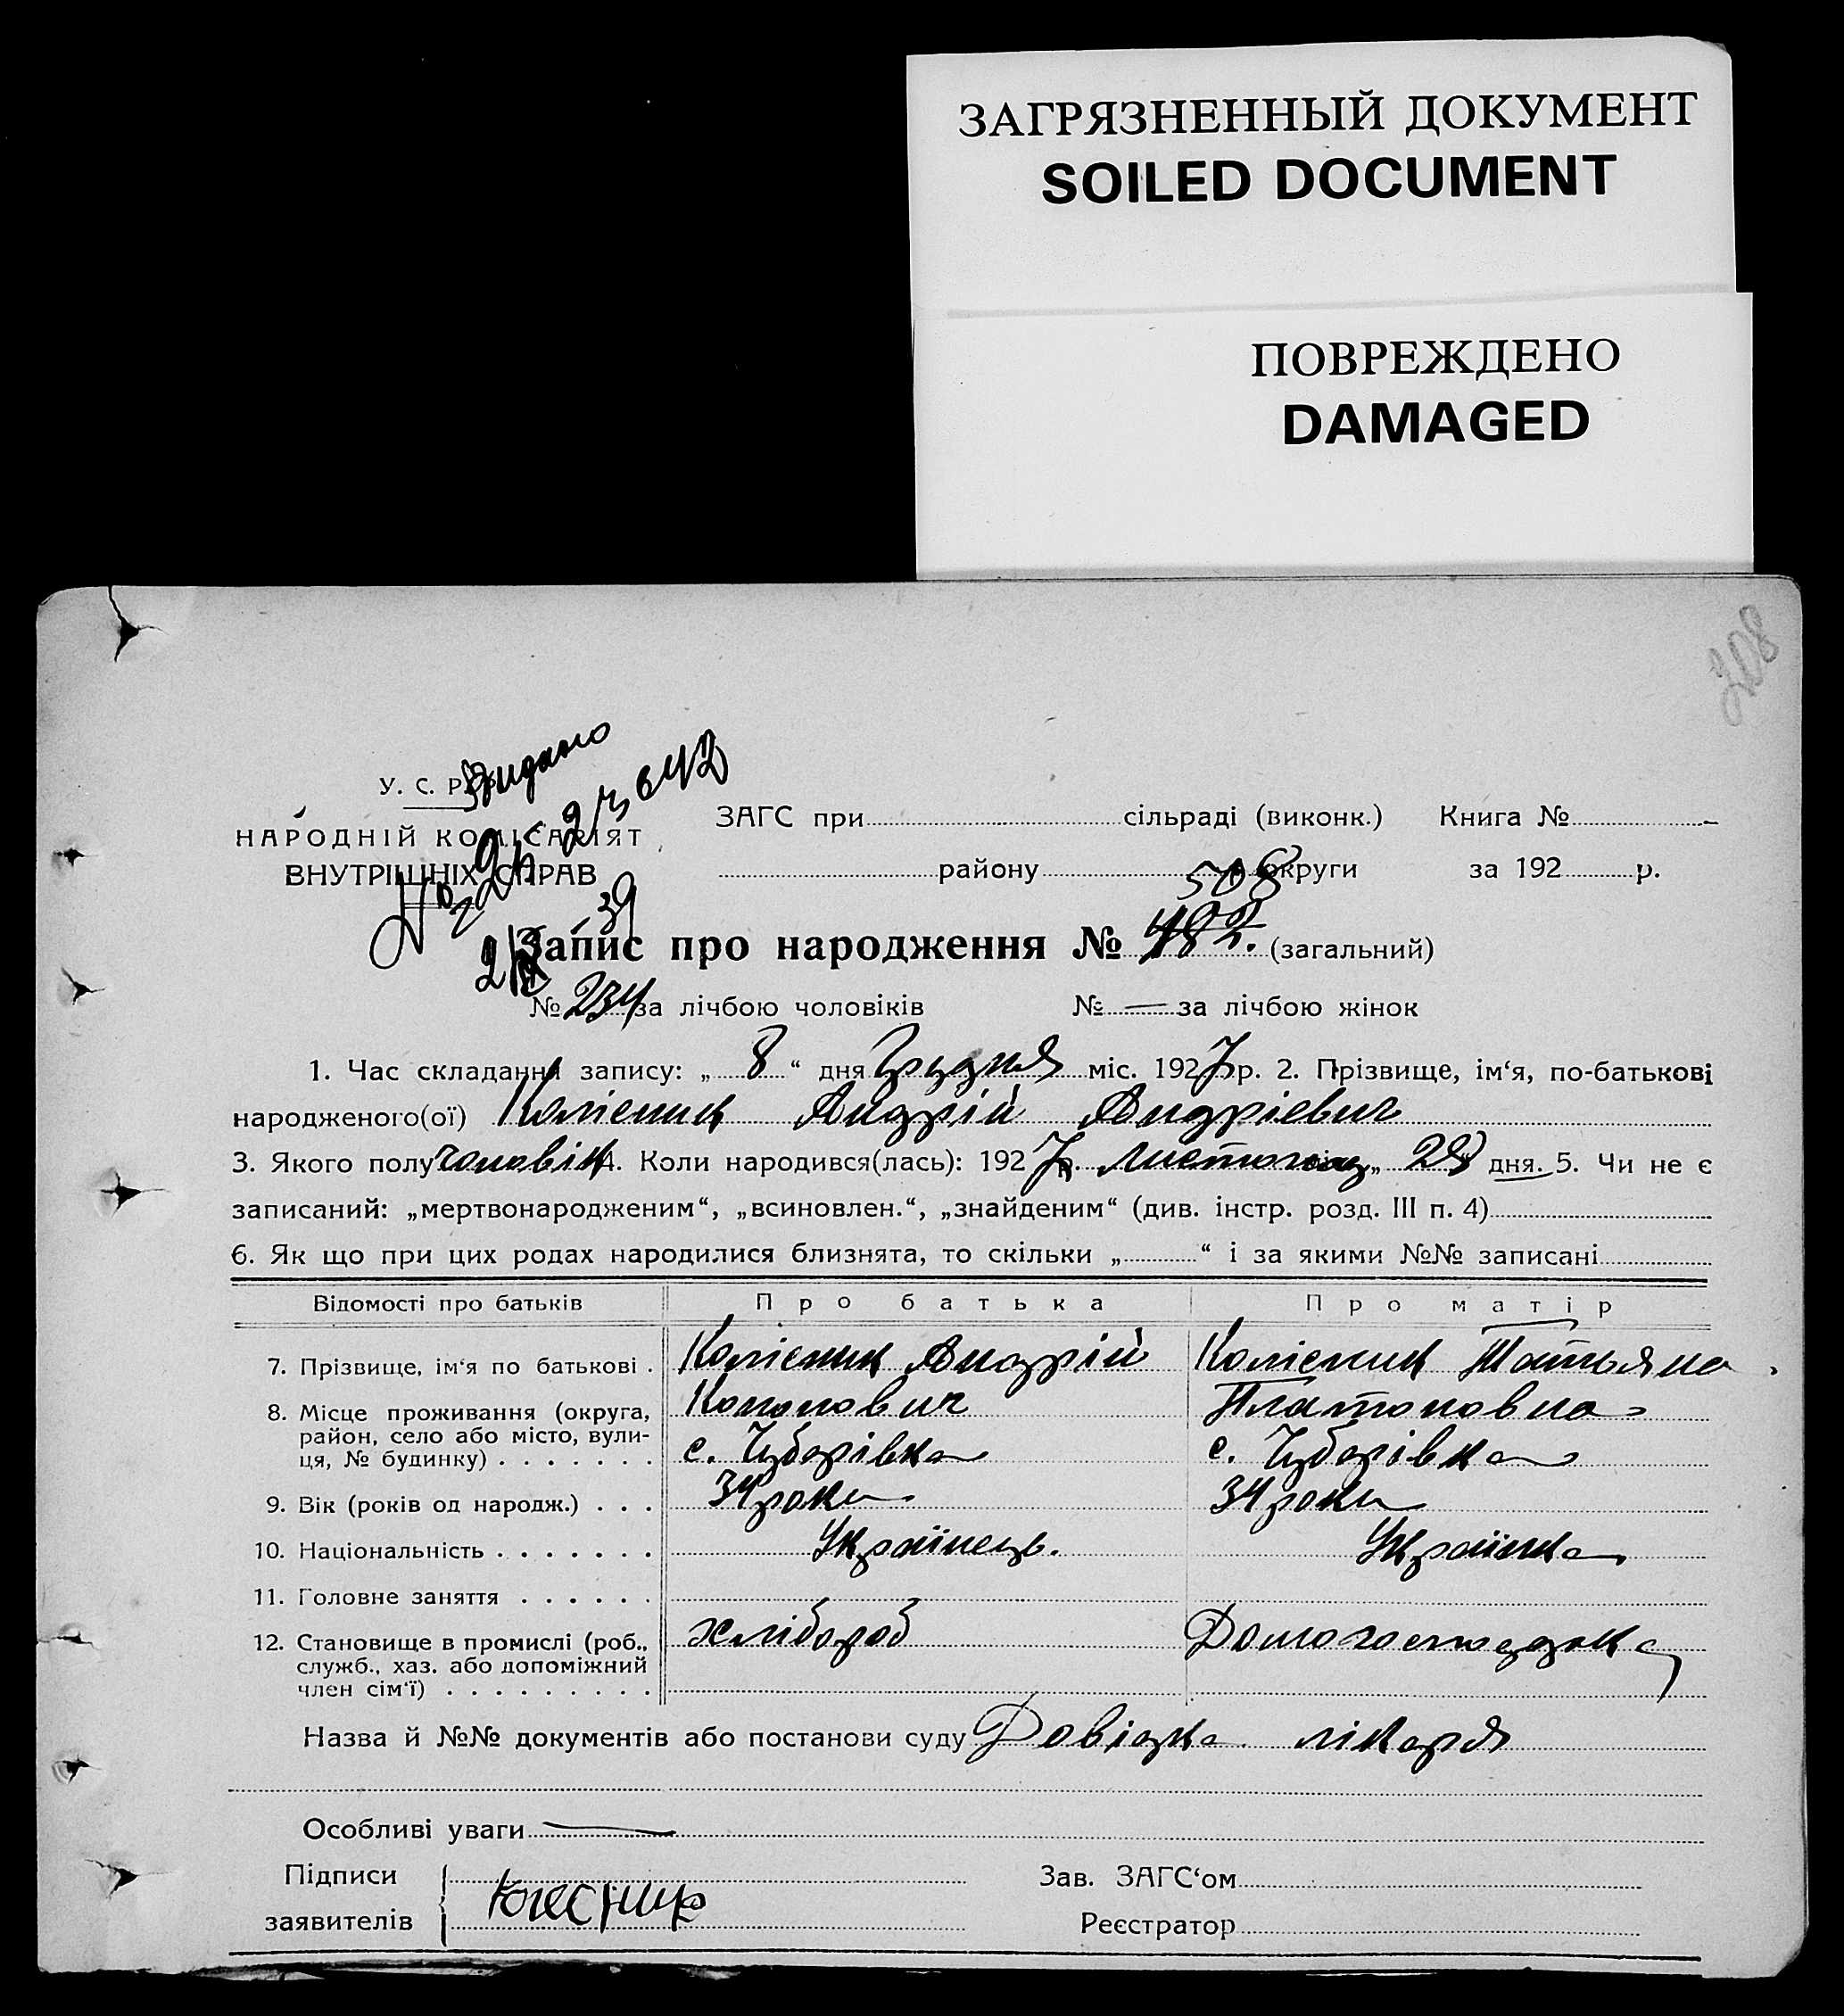 ЗАГРЯЗНЕННЫЙ ДОКУМЕНТ
SOILED DOCUMENT
ПОВРЕЖДЕНО
DAMAGED
308
У. С. Р. Р.
Видано
НАРОДНІЙ КОМІСАРІЯТ
ВНУТРІШНІХ СПРАВ
ЗАГС при сільраді (виконк.) Книга №
району округи за 192 р.
508
Запис про народження № 482. (загальний)
№ 234 за лічбою чоловіків № — за лічбою жінок
1. Час складання запису: „ 8 “ дня Грудня міс. 1927 р. 2. Прізвище, ім‘я, по-батькові
народженого(ої) Колісник Андрій Андрієвич
3. Якого полу чоловік 4. Коли народився(лась): 1927 р. листопад „ 28 дня. 5. Чи не є
записаний: „мертвонародженим“, „всиновлен.“, „знайденим“ (див. інстр. розд. III п. 4)
6. Як що при цих родах народилися близнята, то скільки „ “ і за якими №№ записані
Відомості про батьків Про батька Про матір
7. Прізвище, ім‘я по батькові . Колісник Андрій Колісник Татьяна
8. Місце проживання (округа, Кононович Платоновна
район, село або місто, вули-
ця, № будинку) . . . . . . . с. Чубарівка с. Чубарівка
9. Вік (років од народж.) . . . 34 роки 34 роки
10. Національність . . . . . . . Українець. Українка
11. Головне заняття . . . . . .
12. Становище в промислі (роб., хлібороб Домогосподарка
служб., хаз. або допоміжний
член сім‘ї) . . . . . . . . .
Назва й №№ документів або постанови суду Довідка лікаря
Особливі уваги —
Підписи Зав. ЗАГС‘ом
заявителів Реєстратор